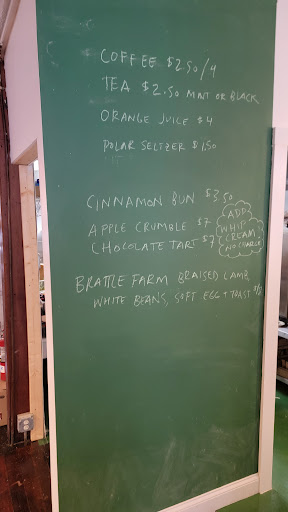 COFFEE $2.50/4
TEA $2.50 MINT OR BLACK
ORANGE JUICE $4
POLAR SELTZER $1.50
CINNAMON BUN $3.50
APPLE CRUMBLE $7
CHOCOLATE TART $7
ADD
WHIP
CREAM
NO CHARGE
BRATTLE FARM BRAISED LAMB
WHITE BEANS, SOFT EGG + TOAST